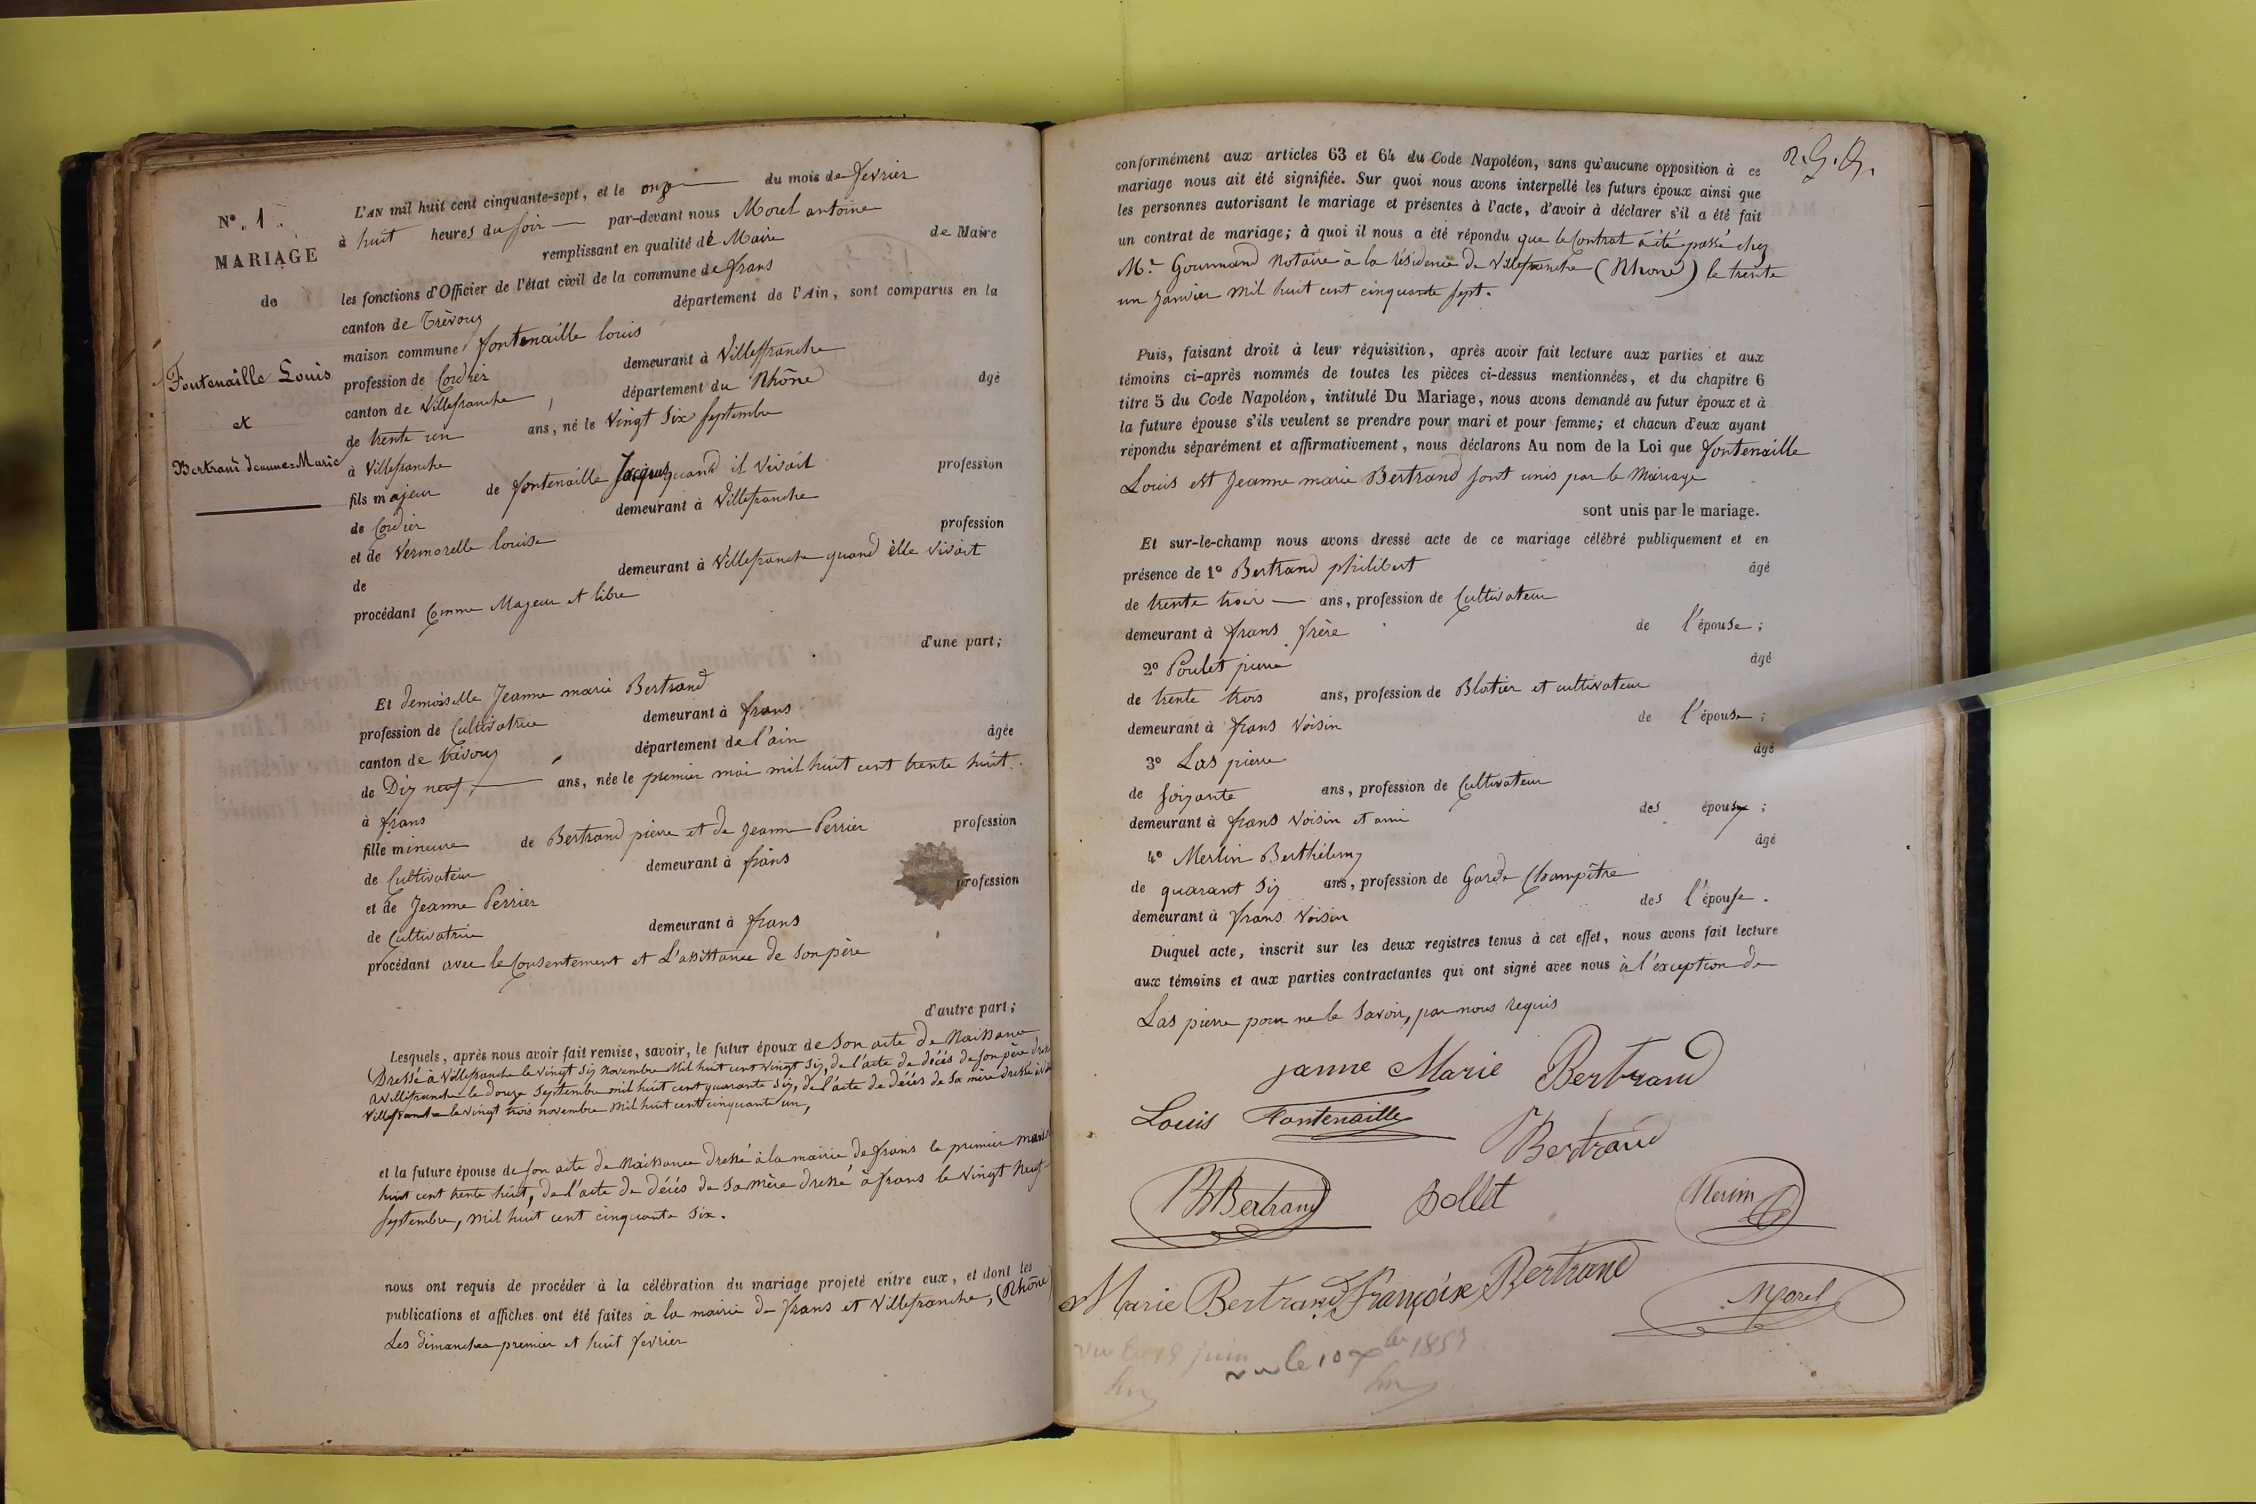 N°. 1.
MARIAGE
de
Fontenaille Louis
et
Bertrand Jeanne-Marie
L'AN mil huit cent cinquante-sept, et le onze du mois de fevrier
à huit heures du soir par-devant nous Morel antoine
remplissant en qualité de Maire de Maire
les fonctions d'Officier de l'état civil de la commune de frans
canton de Trèvoux département de l'Ain, sont comparus en la
maison commune fontenaille louis
profession de Cordier demeurant à Villeffranche
canton de Villefranche, département du Rhône âgé
de trente un ans, né le Vingt Six Septembre
à Villefranche
fils majeur de fontenaille Jacques quand il vivait profession
de Cordier demeurant à Villefranche
et de Vermorelle louise profession
de demeurant à Villefranche quand èlle vivait
procédant Comme Majeur et libre
d'une part;
Et demoiselle Jeanne marie Bertrand
profession de Cultivatrice demeurant à frans
canton de trévoux, département de l'ain âgée
de Dix neuf, ans, née le premier mai mil huit cent trente huit.
à frans
fille mineure de Bertrand pierre et de Jeanne Perrier profession
de Cultivateur demeurant à frans
et de Jeanne Perrier profession
de Cultivatrice demeurant à frans
procédant avec le Consentement et L'assittance de son père
d'autre part;
Lesquels, après nous avoir fait remise, savoir, le futur époux de Son acte de Naissance
Dressé à Villefranche le vingt six novembre mil huit cent vingt six, de l'acte de décés de son père dressé
a villefranche le douze Septembre mil huit cent quarante six, de l'acte de décés de sa mère dressé à
Villefranche le vingt trois novembre mil huit cent cinquante un,
et la future épouse de son acte de Naissance dressé à la mairie de frans le premier mai
huit cent trente huit, de l'acte de décés de sa mère dressé à frans le vingt neuf
septembre, mil huit cent cinquante six.
nous ont requis de procéder à la célébration du mariage projeté entre eux, et dont les
publications et affiches ont été faites à la mairie de frans et Villefranche, (Rhône)
Les dimanches premier et huit fevrier
conformément aux articles 63 et 64 du Code Napoléon, sans qu'aucune opposition à ce
mariage nous ait été signifiée. Sur quoi nous avons interpellé les futurs époux ainsi que
les personnes autorisant le mariage et présentes à l'acte, d'avoir à déclarer s'il a été fait
un contrat de mariage; à quoi il nous a été répondu que le Contrat à été passé chez
Mr. Gourmand Notaire à la résidence de Villefranche (Rhone) le trente
un Janvier mil huit cent cinquante sept.
Puis, faisant droit à leur réquisition, après avoir fait lecture aux parties et aux
témoins ci-après nommés de toutes les pièces ci-dessus mentionnées, et du chapitre 6
titre 5 du Code Napoléon, intitulé Du Mariage, nous avons demandé au futur époux et à
la future épouse s'ils veulent se prendre pour mari et pour femme; et chacun d'eux ayant
répondu séparément et affirmativement, nous déclarons Au nom de la Loi que fontenaille
Louis ett Jeanne marie Bertrand sont unis par le Mariage
sont unis par le mariage.
Et sur-le-champ nous avons dressé acte de ce mariage célébré publiquement et en
présence de 1° Bertrand philibert âgé
de trente trois ans, profession de Cultivateur
demeurant à frans frère de l'épouse;
2° Poulet pierre âgé
de trente trois ans, profession de Blatier et cultivateur
demeurant à frans Voisin de l'épouse;
3° Las pierre âgé
de soixante ans, profession de Cultivateur
demeurant à frans Voisin et ami des époux;
4° Merlin Berthélemy âgé
de quarant six ans, profession de Garde Champêtre
demeurant à frans Voisin des l'épouse.
Duquel acte, inscrit sur les deux registres tenus à cet effet, nous avons fait lecture
aux témoins et aux parties contractantes qui ont signé avec nous à l'exception de
Las pierre pour ne le savoir, par nous requis
janne Marie Bertrand
Louis Fontenaille
Bertrand
Bertrand pollet Merlin
Marie Bertrand françoise Bertrand
Morel
vu le 19 juin
vu le 10 Xbre 1857